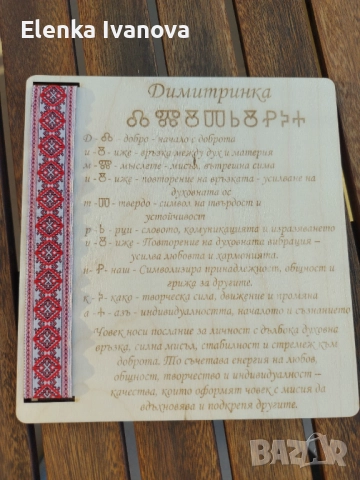 Elenka Ivanova
Димитринка
ⰄⰊⰏⰊⰕⰓⰊⰐⰍⰀ
Д - Ⰴ - добро - начало с доброта
и - Ⰻ - иже - връзка между дух и материя
м - Ⰿ - мыслете - мисъл, вътрешна сила
и - Ⰻ - иже - повторение на връзката - усилване на
духовната ос
т - Ⱅ - твердо - символ на твърдост и
устойчивост
р - Ⱃ - рци - словото, комуникацията и изразяването
и - Ⰻ - иже - Повторение на духовната вибрация -
усилва любовта и хармонията.
н - Ⱀ - наш - Символизира принадлежност, общност и
грижа за другите.
к - Ⰽ - како - творческа сила, движение и промяна
а - Ⰰ - азъ - индивидуалността, началото и съзнанието
Човек носи послание за личност с дълбока духовна
връзка, силна мисъл, стабилност и стремеж към
доброта. То съчетава енергия на любов,
общност, творчество и индивидуалност -
качества, които оформят човек с мисия да
вдъхновява и подкрепя другите.
BAZAR